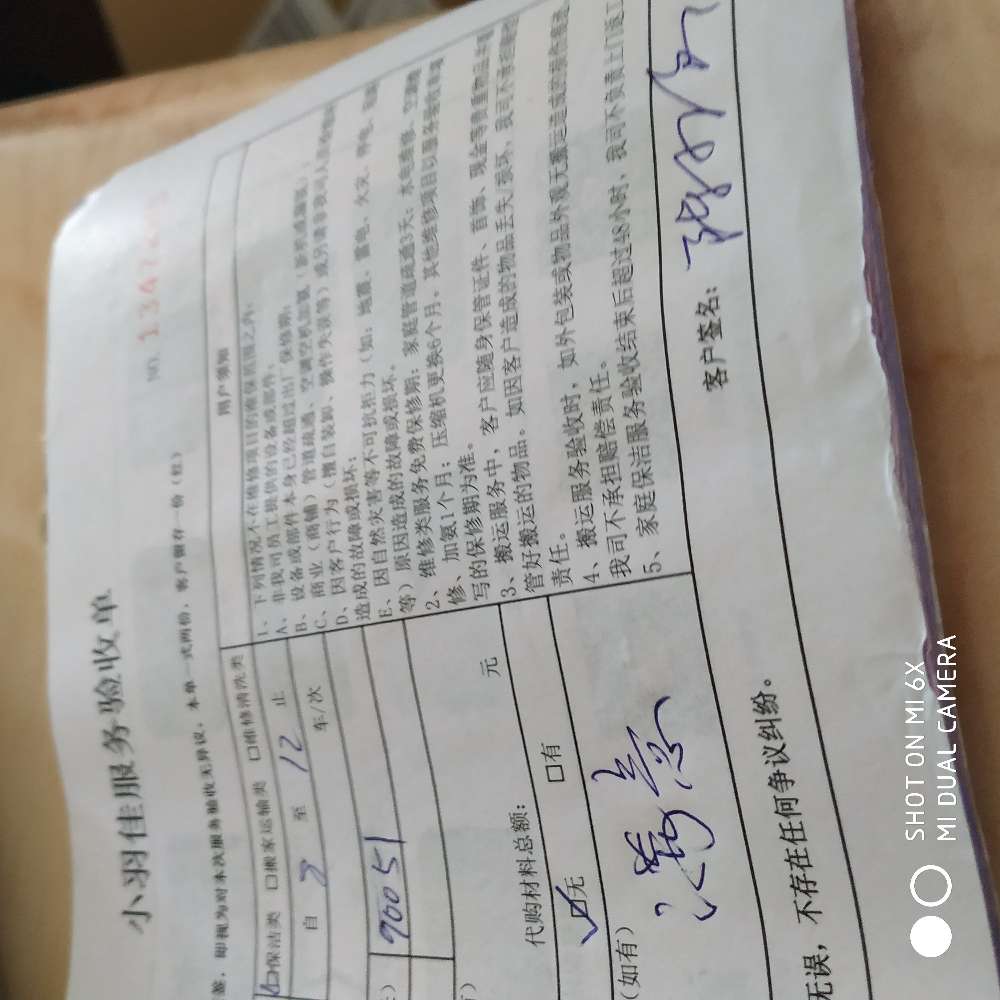 小羽佳服务验收单
NO. 1347
即视为对本次服务验收无异议，本单一式两份，客户留存一份（红）
保洁类 □搬家运输类 □维修清洗类
自 至 12 止
车/次
90051
元
代购材料总额：
无 □有
（如有）
满意
无误，不存在任何争议纠纷。
用户须知
1、下列情况不在维修项目的质保范围之内：
A、非我司员工提供的设备或部件；
B、设备或部件本身已经超过出厂保修期；
C、商业（商铺）管道疏通、空调空机加氨
D、因客户行为（擅自装卸、操作失误等）或
造成的故障或损坏；
E、因自然灾害等不可抗拒力（如：地震、雷电、火灾、停电、
等）原因造成的故障或损坏。
2、维修类服务免费保修期：家庭管道疏通3天；水电维修、空调维
修、加氨1个月；压缩机更换6个月。其他维修项目以服务验收单填
写的保修期为准。
3、搬运服务中，客户应随身保管证件、首饰、现金等贵重物品并看
管好搬运的物品。如因客户造成的物品丢失/损坏，我司不承担赔偿
责任。
4、搬运服务验收时，如外包装或物品外观无搬运造成的损伤痕迹，
我司不承担赔偿责任。
5、家庭保洁服务验收结束后超过48小时，我司不负责上门返工
客户签名：
SHOT ON MI 6X
MI DUAL CAMERA